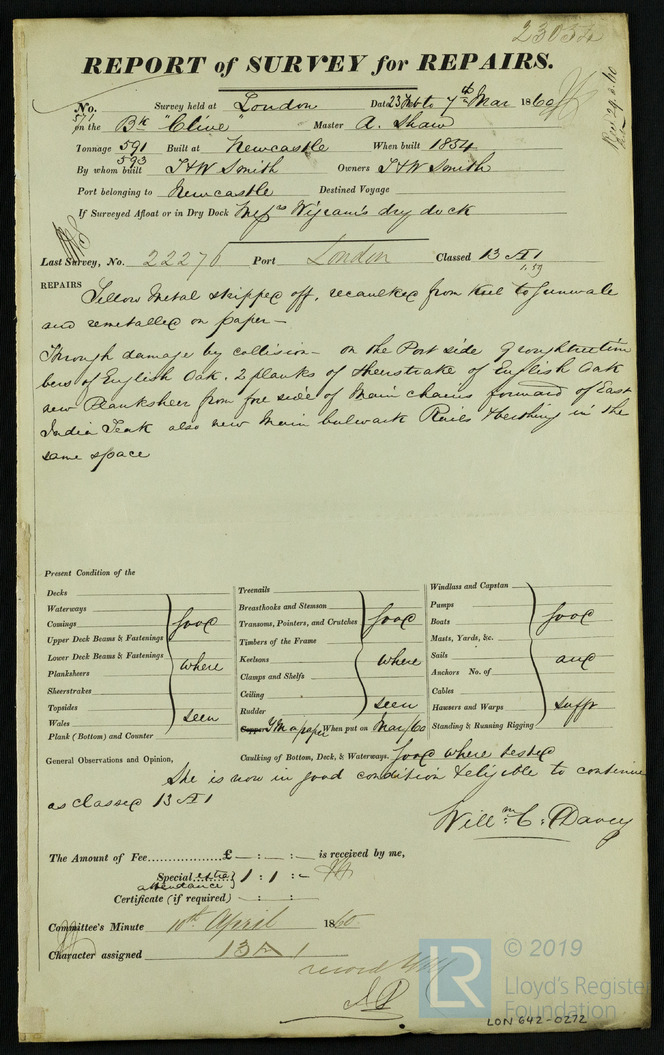 REPORT of SURVEY for REPAIRS.
No. 571 Survey held at London Date 23 Feb to 7th Mar 1860
on the Bk "Clive" Master A. Shaw
Tonnage 591 593 Built at Newcastle When built 1854
By whom built T&W Smith Owners T&W Smith
Port belonging to Newcastle Destined Voyage
If Surveyed Afloat or in Dry Dock Messrs Wigram's dry dock
Last Survey, No. 22276 Port London Classed 13 A 1
1.59
REPAIRS Yellow Metal stripped off, recaulked from Keel to Gunwale
and remetalled on paper —
Through damage by collision — on the Port side 9 roughtree tim
bers of English Oak, 2 planks of Sheerstrake of English Oak
new Planksheer from fore side of Main chains forward of East
India Teak also new Main bulwark Rails & berthing in the
same space
Present Condition of the
Decks
Waterways
Comings
Upper Deck Beams & Fastenings
Lower Deck Beams & Fastenings
Planksheers
Sheerstrakes
Topsides
Wales
Plank (Bottom) and Counter
good
where
seen
Treenails
Breasthooks and Stemson
Transoms, Pointers, and Crutches
Timbers of the Frame
Keelsons
Clamps and Shelfs
Ceiling
Rudder
good
where
seen
Copper YM o/paper When put on Mar/60
Windlass and Capstan
Pumps
Boats
Masts, Yards, &c.
Sails
Anchors No. of
Cables
Hawsers and Warps
Standing & Running Rigging
good
and
sufft
Caulking of Bottom, Deck, & Waterways. good where tested
General Observations and Opinion,
She is now in good condition & eligible to continue
as classed 13 A 1
Willm. C. Davey
The Amount of Fee............... £ — : — : — is received by me,
Special extra attendance 1 : 1 : —
Certificate (if required) — : — : —
Committee's Minute 10th April 1860
Character assigned 13 A 1
record
LR © 2019
Lloyd's Register
Foundation
LON 642-0272